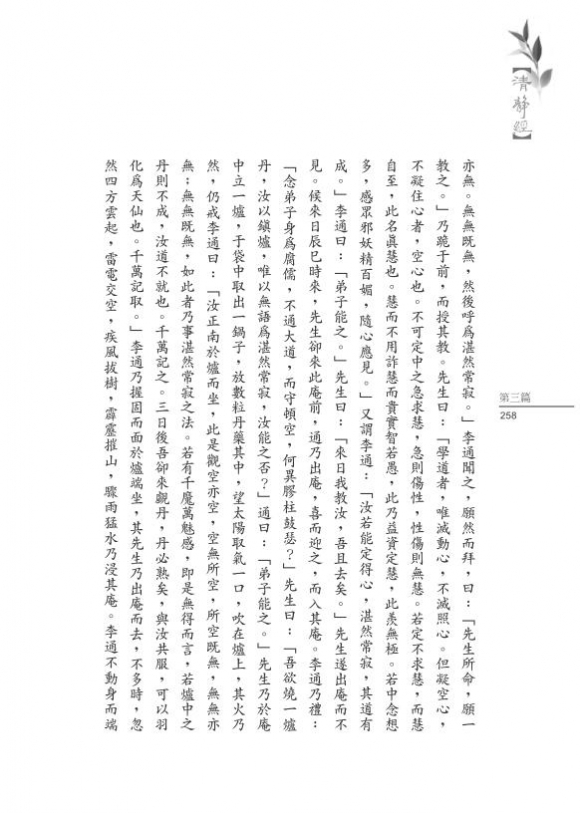 【清靜經】
第三篇
258
亦無。無無既無，然後呼為湛然常寂。」李通聞之，願然而拜，曰：「先生所命，願一
教之。」乃跪于前，而授其教。先生曰：「學道者，唯滅動心，不滅照心。但凝空心，
不凝住心者，空心也。不可定中之急求慧，急則傷性，性傷則無慧。若定不求慧，而慧
自至，此名真慧也。慧而不用詐慧而貴實智若愚，此乃益資定慧，此羨無極。若中念想
多，感眾邪妖精百媚，隨心應見。」又謂李通：「汝若能定得心，湛然常寂，其道有
成。」李通曰：「弟子能之。」先生曰：「來日我教汝，吾且去矣。」先生遂出庵而不
見。候來日辰巳時來，先生卻來此庵前，通乃出庵，喜而迎之，而入其庵。李通乃禮：
「念弟子身為腐儒，不通大道，而守頓空，何異膠柱鼓瑟？」先生曰：「吾欲燒一爐
丹，汝以鎮爐，唯以無語為湛然常寂，汝能之否？」通曰：「弟子能之。」先生乃於庵
中立一爐，于袋中取出一鍋子，放數粒丹藥其中，望太陽取氣一口，吹在爐上，其火乃
然，仍戒李通曰：「汝正南於爐而坐，此是觀空亦空，空無所空，所空既無，無無亦
無；無無既無，如此者乃事湛然常寂之法。若有千魔萬魅感，即是無得而言，若爐中之
丹則不成，汝道不就也。千萬記之。三日後吾卻來觀丹，丹必熟矣，與汝共服，可以羽
化為天仙也。千萬記取。」李通乃握固而面於爐端坐，其先生乃出庵而去，不多時，忽
然四方雲起，雷電交空，疾風拔樹，霹靂摧山，驟雨猛水乃浸其庵。李通不動身而端